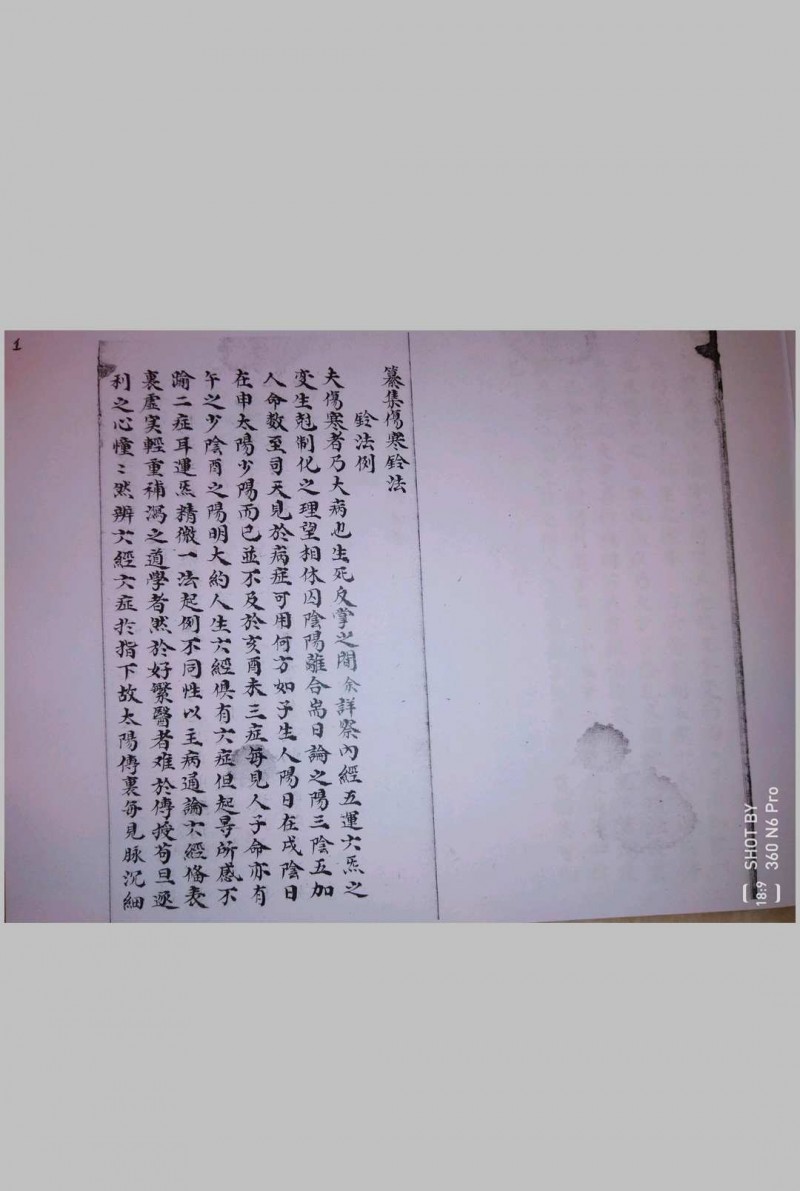 1
纂集傷寒鈴法
鈴法例
夫傷寒者乃大病也生死反掌之間余詳察內經五運六炁之
変生尅制化之理望相休囚陰陽離合耑日論之陽三陰五加
人命数至司天見於病症可用何方如子生人陽日在戌陰日
在申太陽少陽而已並不及於亥酉未三症每見人子命亦有
午之少陰酉之陽明大約人生六經俱有六症但起㝵所感不
踰二症耳運炁精微一法起例不同性以主病通論六經俻表
裏虛实輕重補瀉之道學者然於好繁醫者难於傳授苟且逐
利之心憧〻然辨六經六症扵指下故太陽傳裏每見脉沉細
SHOT BY
18:9 360 N6 Pro